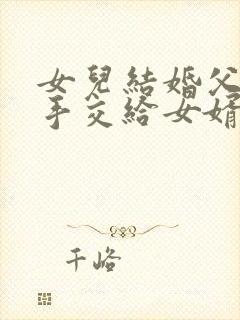 女兒結婚父
手交給女婿
千峪